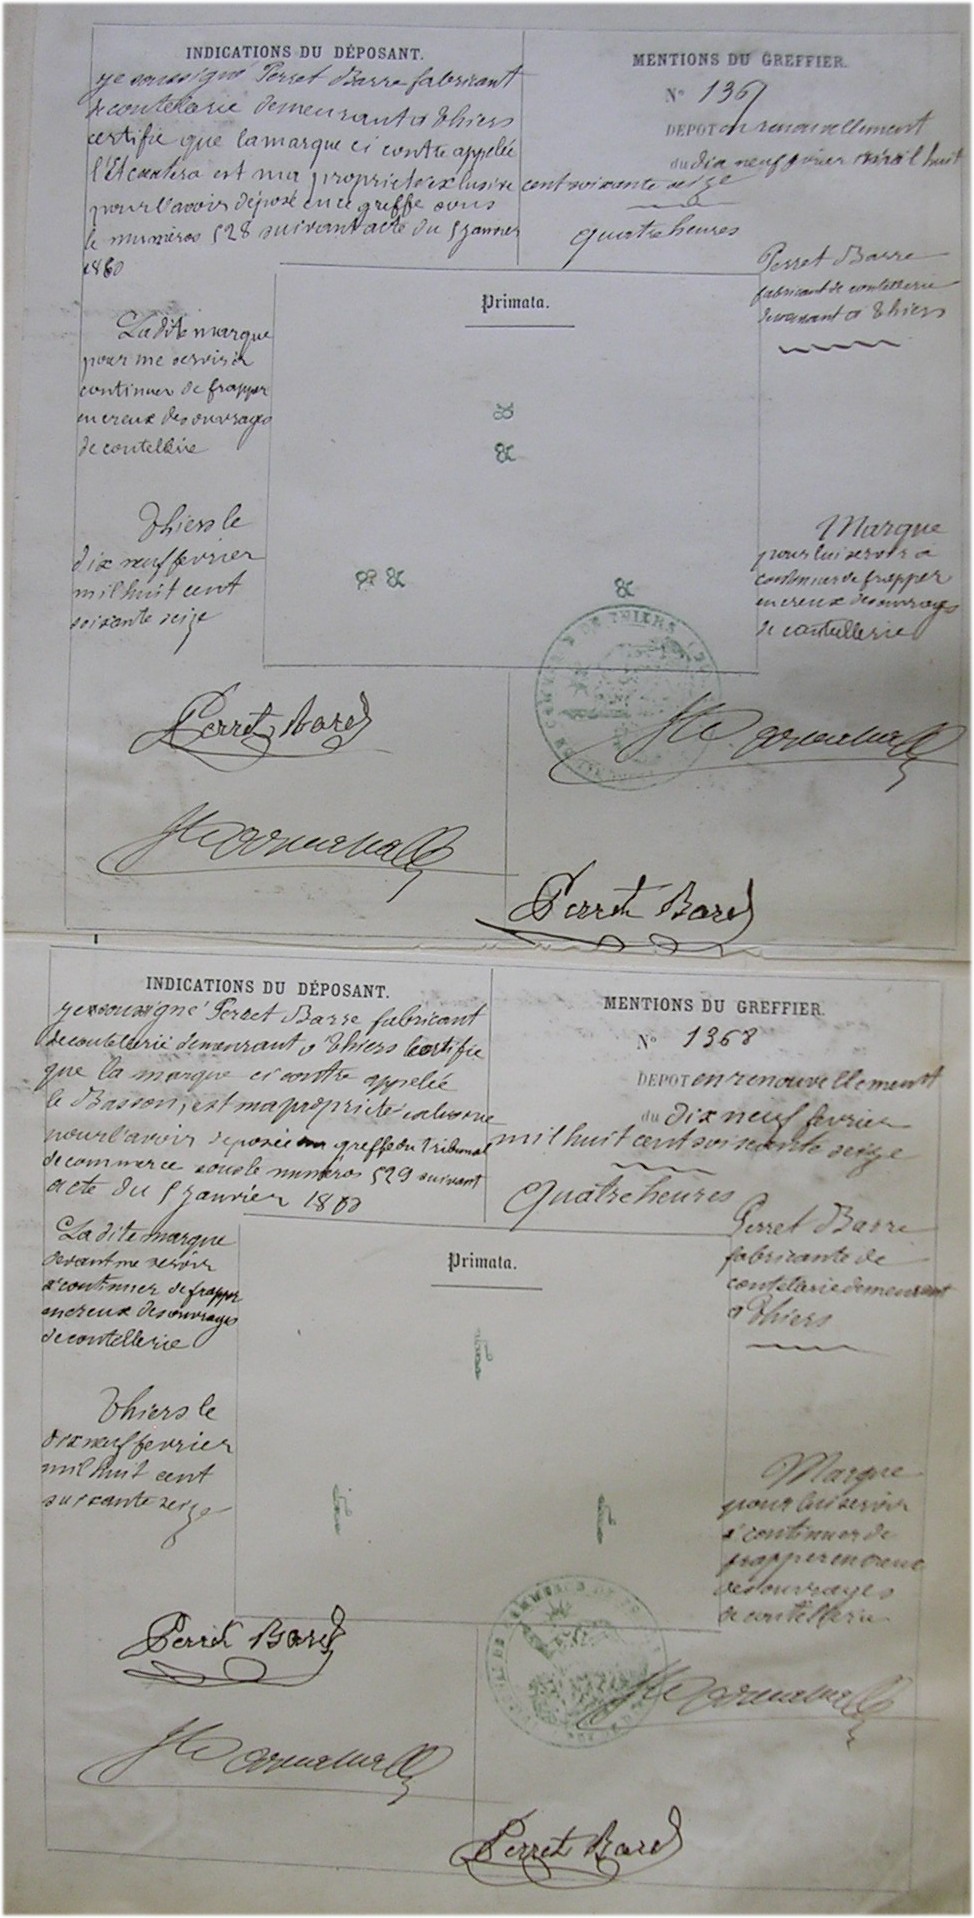 INDICATIONS DU DÉPOSANT.
je soussigné Perret Barre fabricant
de coutelerie demeurant a Thiers
certifie que la marque ci contre appelée
est ma propriété exclusive
pour l'avoir déposé en ce greffe sous
le numéros 528 suivant acte du 5 janvier
1860
La dite marque
pour me servir à
continuer de frapper
en creux des ouvrages
de coutellerie
Thiers le
dix neuf fevrier
mil huit cent
soixante seize
MENTIONS DU GREFFIER.
N° 1367
DEPOT en renouvellement
du dix neuf février mil huit
cent soixante seize
quatre heures
Perret Barre
fabricant de coutellerie
demeurant a Thiers
Primata.
Marque
pour lui servir a
continuer de frapper
en creux des ouvrages
de coutellerie
DE COMMERCE DE THIERS
Perret Barre
Perret Barre
INDICATIONS DU DÉPOSANT.
je soussigné Perret Barre fabricant
de coutellerie demeurant a Thiers certifie
que la marque ci contre appelée
le Basson, est ma propriété exclusive
pour l'avoir deposée au greffe du Tribunal
de commerce sous le numéros 529 suivant
acte du 5 janvier 1860
La dite marque
devant me servir
a continuer de frapper
en creux des ouvrages
de coutellerie
Thiers le
dix neuf fevrier
mil huit cent
soixante seize
MENTIONS DU GREFFIER.
N° 1368
DEPOT en renouvellement
du dix neuf fevrier
mil huit cent soixante seize
quatre heures
Perret Barre
fabricante de
coutelerie demeurant
a Thiers
Primata.
Marque
pour lui servir
a continuer de
frapper en creux
des ouvrages
de coutellerie
Perret Barre
Perret Barre